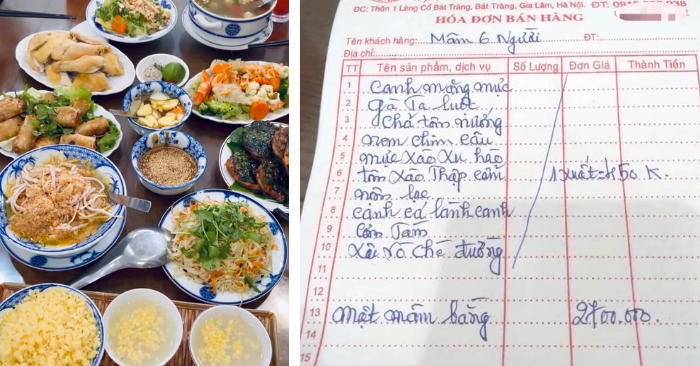 ĐC: Thôn 1 Làng Cổ Bát Tràng, Bát Tràng, Gia Lâm, Hà Nội. ĐT:
HÓA ĐƠN BÁN HÀNG
Tên khách hàng: Mâm 6 Người ĐT:
Địa chỉ:
TT Tên sản phẩm, dịch vụ Số Lượng Đơn Giá Thành Tiền
1 canh măng mực
2 gà Ta luộc
3 Chả tôm nướng
4 nem chim câu
5 mực xào xu hào
6 tôm xào Thập cẩm 1 xuất = 450 K.
7 nộm
8 canh cá lành canh
9
10 xôi vò chè đường
11
12
13 một mâm bằng 2700.000.
14
15